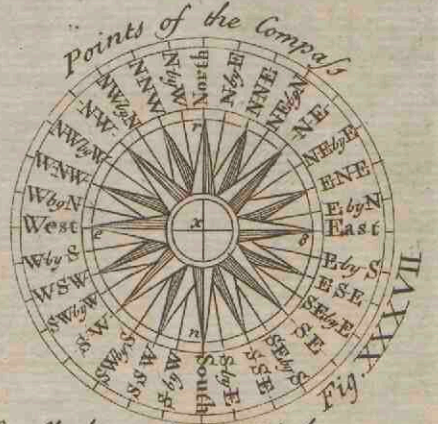 Points of the Compass
North
NbyE
NNE
NEbyN
NE
NEbyE
ENE
EbyN
East
EbyS
ESE
SEbyE
SE
SEbyS
SSE
SbyE
South
SbyW
SSW
SWbyS
SW
SWbyW
WSW
WbyS
West
WbyN
WNW
NWbyW
-NW-
NWbyN
NNW
NbyW
r
e
x
8
n
Fig. XXXVII